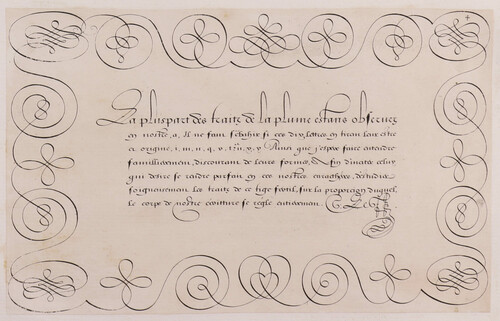 La pluspart des traitz de la plume estans obseruez
en nostre, a, Il ne faut s'esbahir si ces dix lettres en tirent leur estre
et origine, i, m, n, q, r, u, y, y Ainsi que j'espere faire entendre
familierement, discourant de leurs formes, Afin d'inciter celuy
qui desire se rendre parfait en ces nostres caracteres, d'estudier
soigneusement les traitz de ce tige fertil, sur la proporcion duquel,
le corps de nostre escriture se regle entierement.